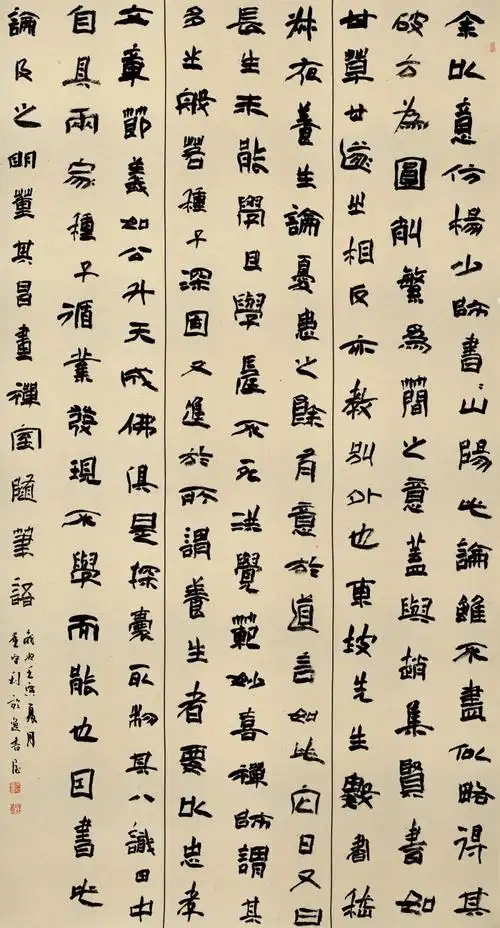 余以意仿楊少師書〻山陽此論雖不盡似略得其
破方為圓削繁為簡之意蓋與趙集賢書如
甘草甘遂之相反亦教別外也東坡先生數書嵇
叔夜養生論憂患之餘有意於道言如此它日又曰
長生未能學且學長不死洪覺範妙喜禪師謂其
多生般若種子深固又進於所謂養生者要以忠孝
文章節義如公升天成佛俱是探囊取物其八識田中
自具兩家種子循業發現不學而能也因書此
論及之明董其昌畫禪室隨筆語
歲次壬寅夏月